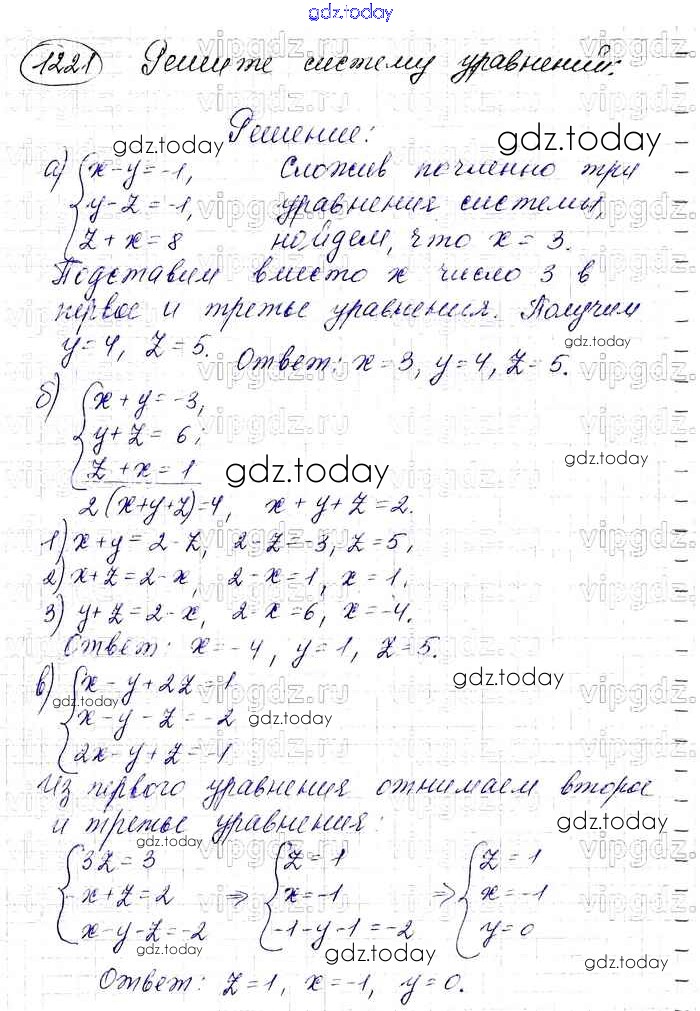 gdz.today
1221 Решите систему уравнений.
Решение:
gdz.today gdz.today
а) { x - y = -1, Сложив почленно три
y - z = -1, уравнения системы,
z + x = 8 найдем, что x = 3.
Подставим вместо x число 3 в
первое и третье уравнения. Получим
y = 4, z = 5. Ответ: x = 3, y = 4, z = 5.
gdz.today
б) { x + y = -3,
y + z = 6,
z + x = 1
gdz.today
2(x+y+z)=4, x + y + z = 2.
1) x + y = 2 - z, 2 - z = -3, z = 5,
2) x + z = 2 - x, 2 - x = 1, x = 1.
3) y + z = 2 - x, 2 - x = 6, x = -4.
Ответ: x = -4, y = 1, z = 5.
в) { x - y + 2z = 1
gdz.today gdz.today
x - y - z = -2 gdz.today
2x - y + z = -1
Из первого уравнения отнимаем второе
и третье уравнения:
gdz.today gdz.today
{ 3z = 3 ⇒ { z = 1 ⇒ { z = 1
-x + z = 2 x = -1 x = -1
x - y - z = -2 -1 - y - 1 = -2 y = 0
gdz.today gdz.today gdz.today
Ответ: z = 1, x = -1, y = 0.